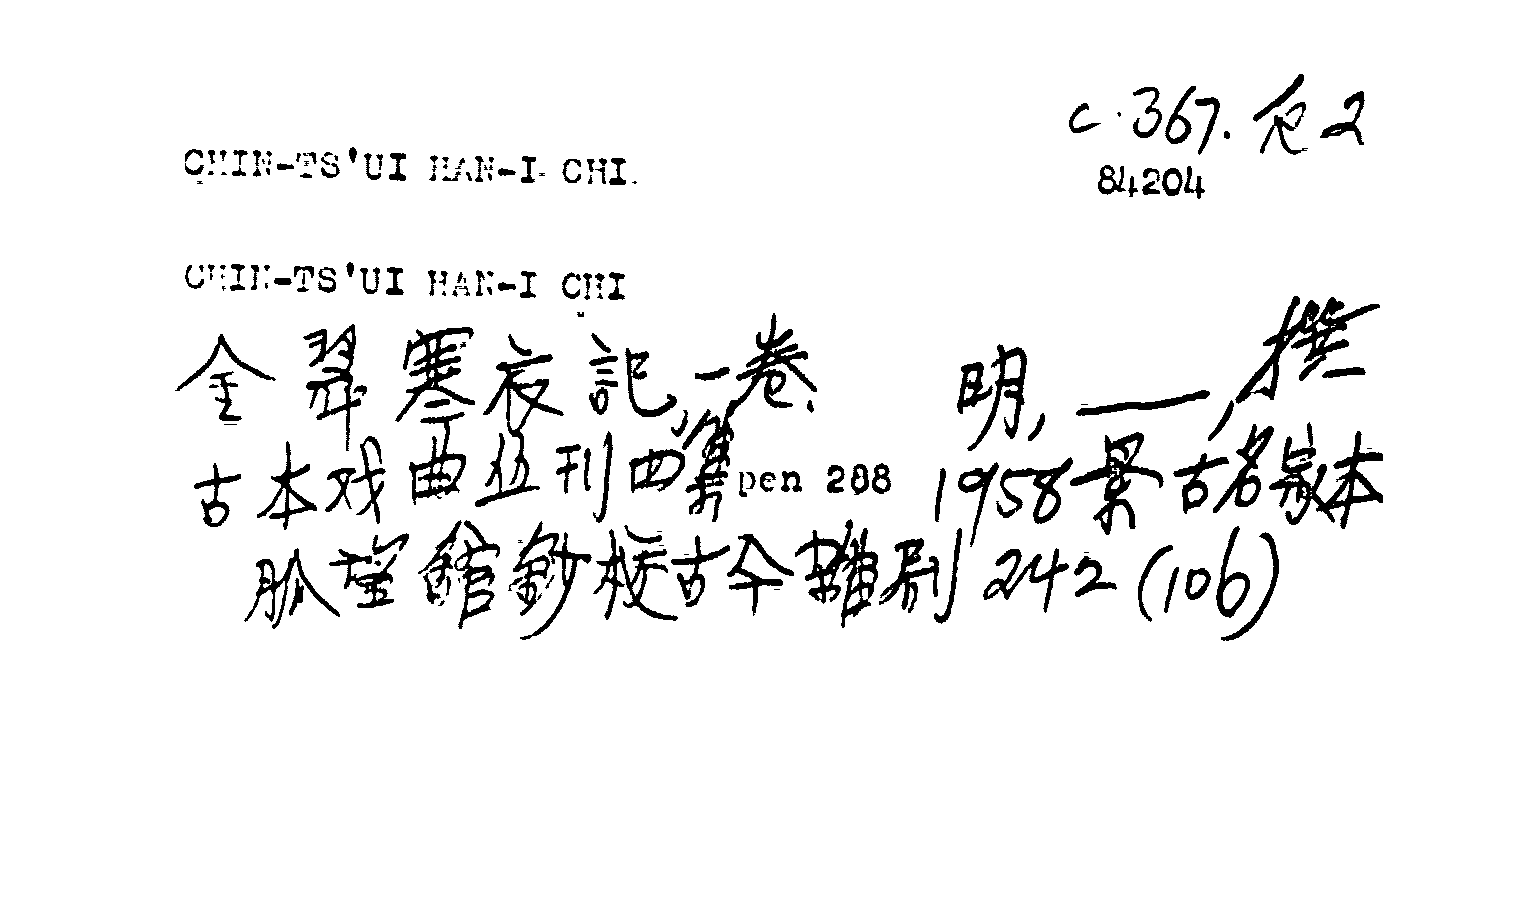 C.367.仓2
84204
CHIN-TS'UI HAN-I CHI.
CHIN-TS'UI HAN-I CHI
金翠寒衣記,一卷. 明,——,撰
古本戏曲丛刊四集 pen 208 1958景古名家本
脈望館鈔校古今雜剧 242 (106)